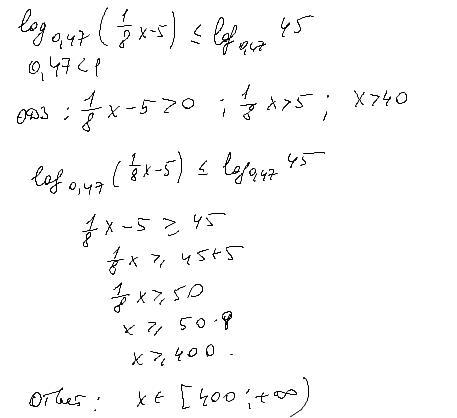 log₀,₄₇(1/8 x-5) ≤ log₀,₄₇ 45
0,47<1
ОДЗ: 1/8 x-5>0 ; 1/8 x>5 ; x>40
log₀,₄₇(1/8 x-5) ≤ log₀,₄₇ 45
1/8 x-5 ≥ 45
1/8 x ≥ 45+5
1/8 x ≥ 50
x ≥ 50·8
x ≥ 400.
Ответ: x ∈ [400;+∞)